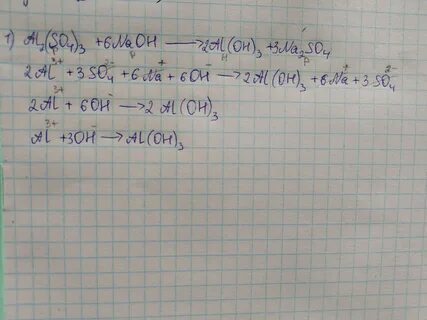 1) Al₂(SO₄)₃ + 6NaOH ⟶ 2Al(OH)₃ + 3Na₂SO₄
2Al³⁺ + 3SO₄²⁻ + 6Na⁺ + 6OH⁻ ⟶ 2Al(OH)₃ + 6Na⁺ + 3SO₄²⁻
2Al³⁺ + 6OH⁻ ⟶ 2Al(OH)₃
Al³⁺ + 3OH⁻ ⟶ Al(OH)₃